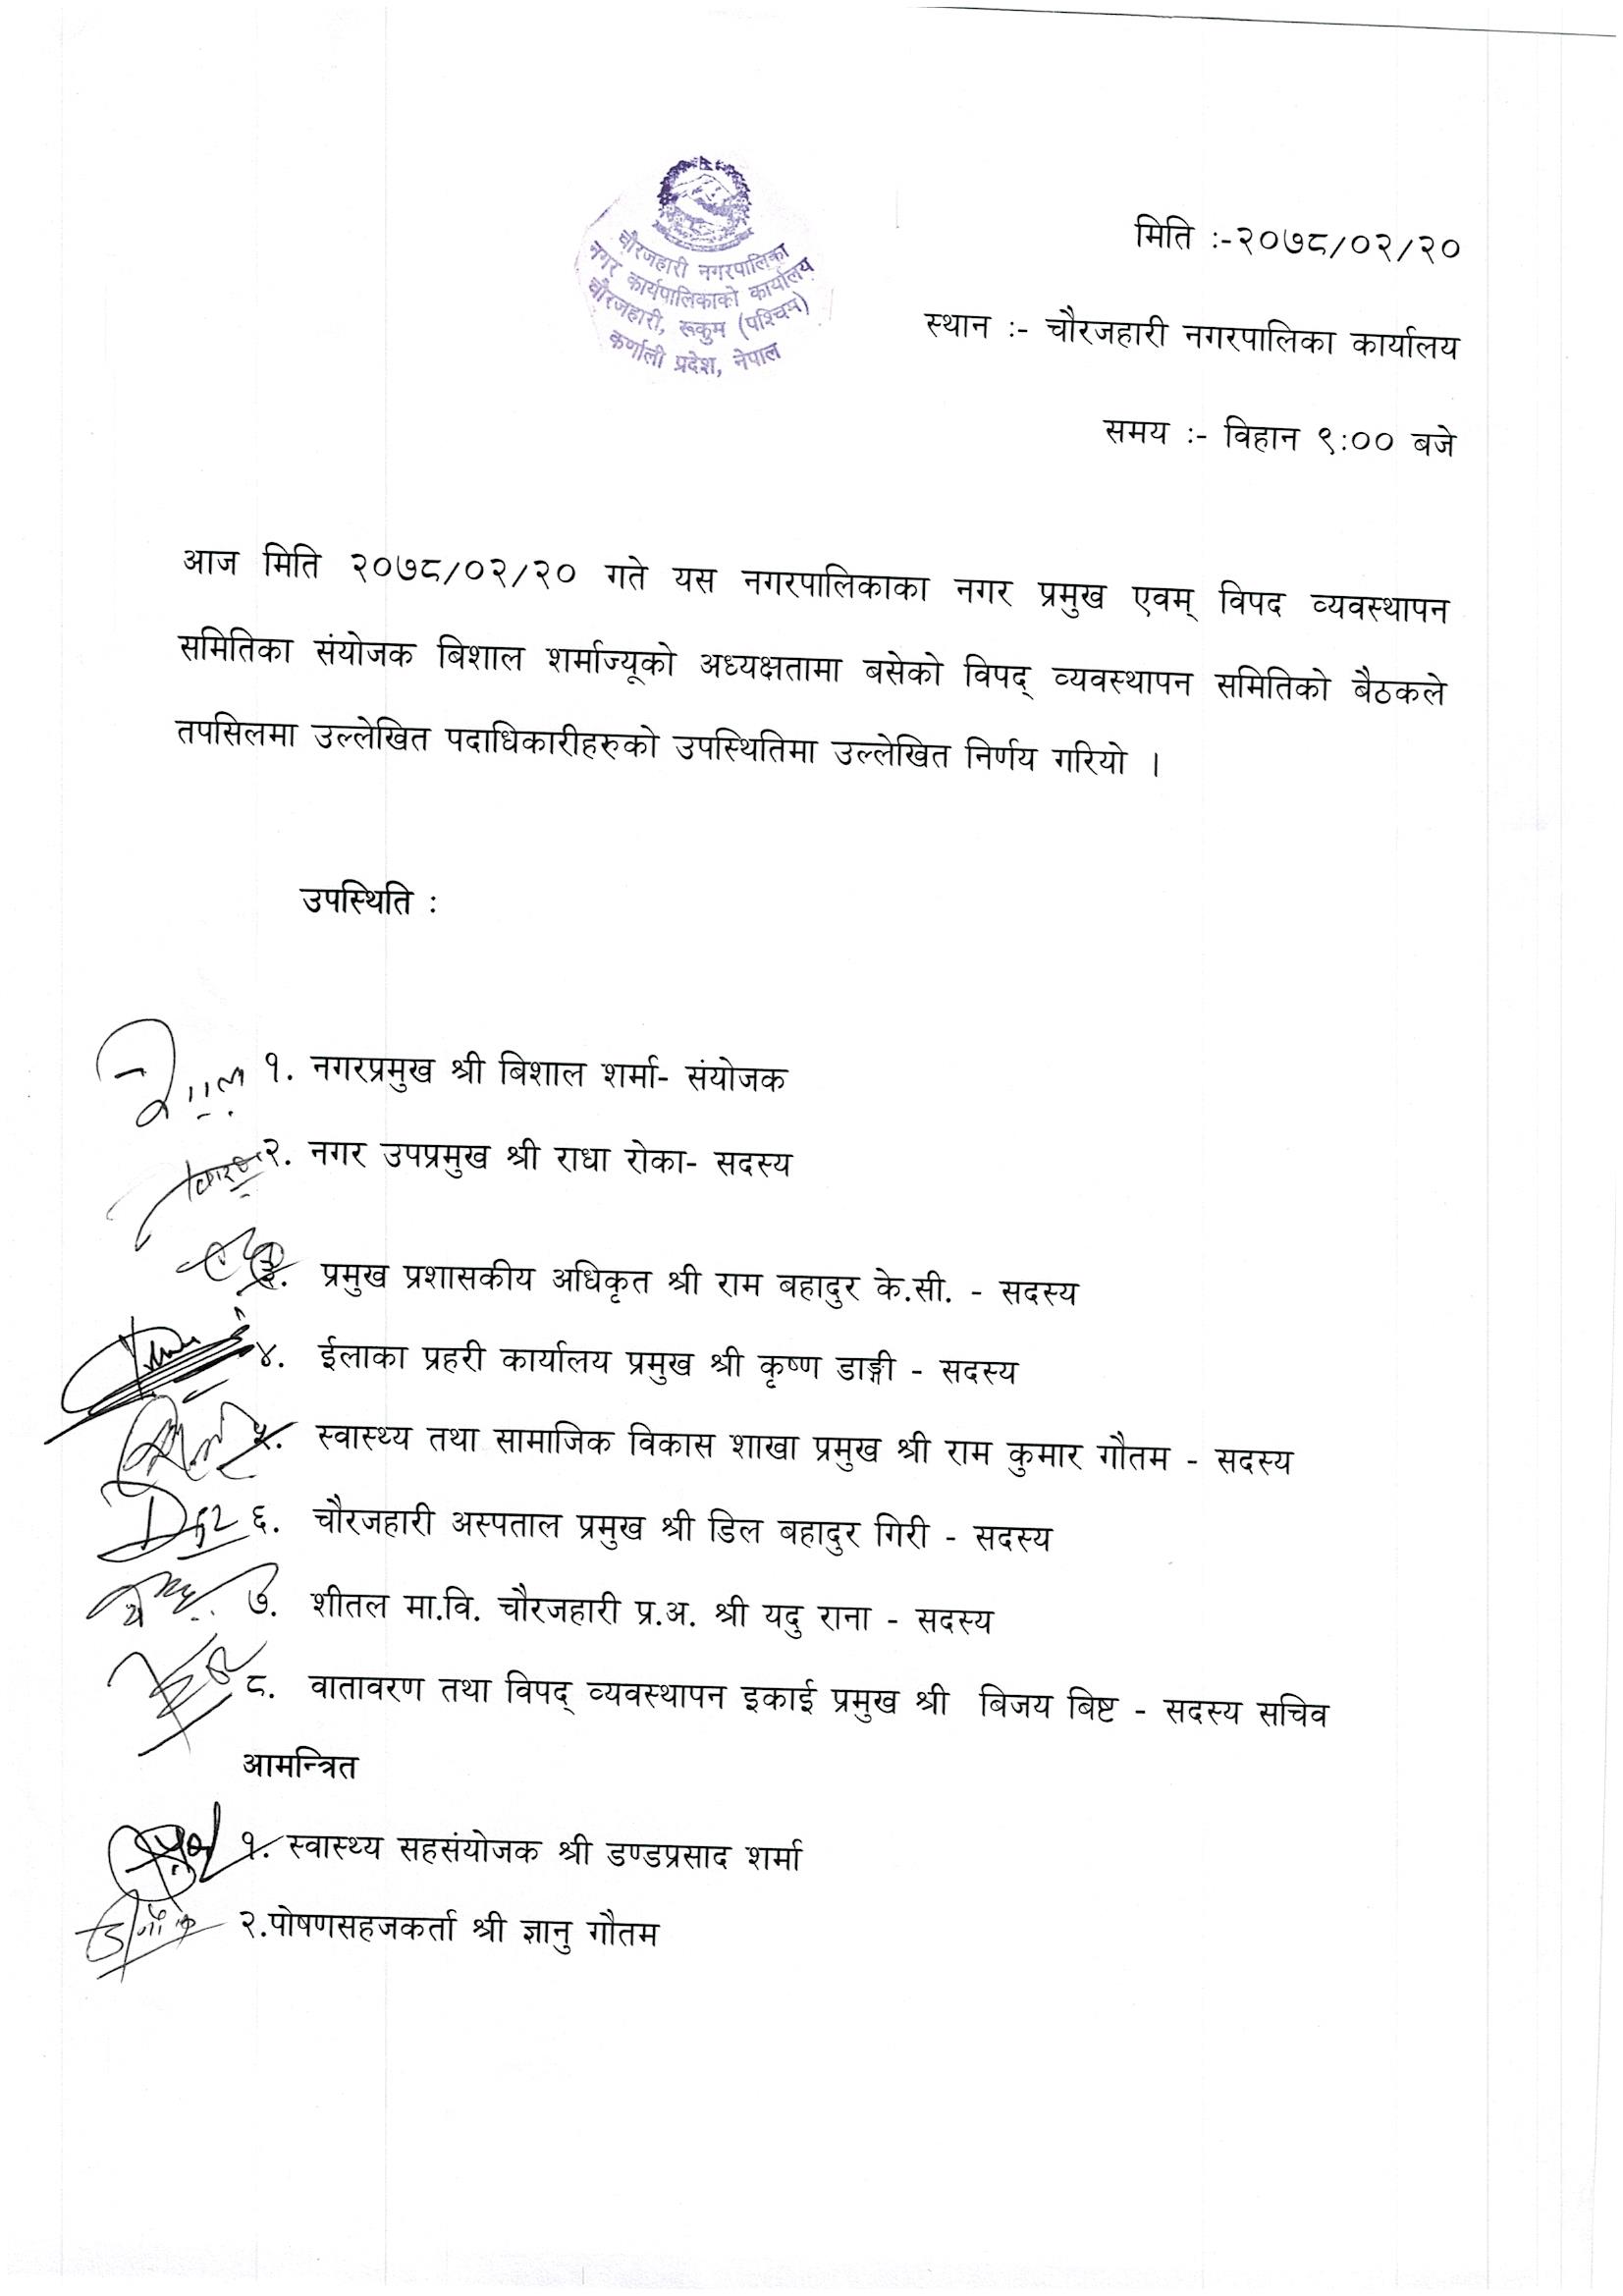 चौरजहारी नगरपालिका
नगर कार्यपालिकाको कार्यालय
चौरजहारी, रूकुम (पश्चिम)
कर्णाली प्रदेश, नेपाल
मिति :-२०७८/०२/२०
स्थान :- चौरजहारी नगरपालिका कार्यालय
समय :- विहान ९:०० बजे
आज मिति २०७८/०२/२० गते यस नगरपालिकाका नगर प्रमुख एवम् विपद व्यवस्थापन
समितिका संयोजक बिशाल शर्माज्यूको अध्यक्षतामा बसेको विपद् व्यवस्थापन समितिको बैठकले
तपसिलमा उल्लेखित पदाधिकारीहरुको उपस्थितिमा उल्लेखित निर्णय गरियो ।
उपस्थिति :
१. नगरप्रमुख श्री बिशाल शर्मा- संयोजक
२. नगर उपप्रमुख श्री राधा रोका- सदस्य
३. प्रमुख प्रशासकीय अधिकृत श्री राम बहादुर के.सी. - सदस्य
४. ईलाका प्रहरी कार्यालय प्रमुख श्री कृष्ण डाङ्गी - सदस्य
५. स्वास्थ्य तथा सामाजिक विकास शाखा प्रमुख श्री राम कुमार गौतम - सदस्य
६. चौरजहारी अस्पताल प्रमुख श्री डिल बहादुर गिरी - सदस्य
७. शीतल मा.वि. चौरजहारी प्र.अ. श्री यदु राना - सदस्य
८. वातावरण तथा विपद् व्यवस्थापन इकाई प्रमुख श्री बिजय बिष्ट - सदस्य सचिव
आमन्त्रित
१. स्वास्थ्य सहसंयोजक श्री डण्डप्रसाद शर्मा
२.पोषणसहजकर्ता श्री ज्ञानु गौतम